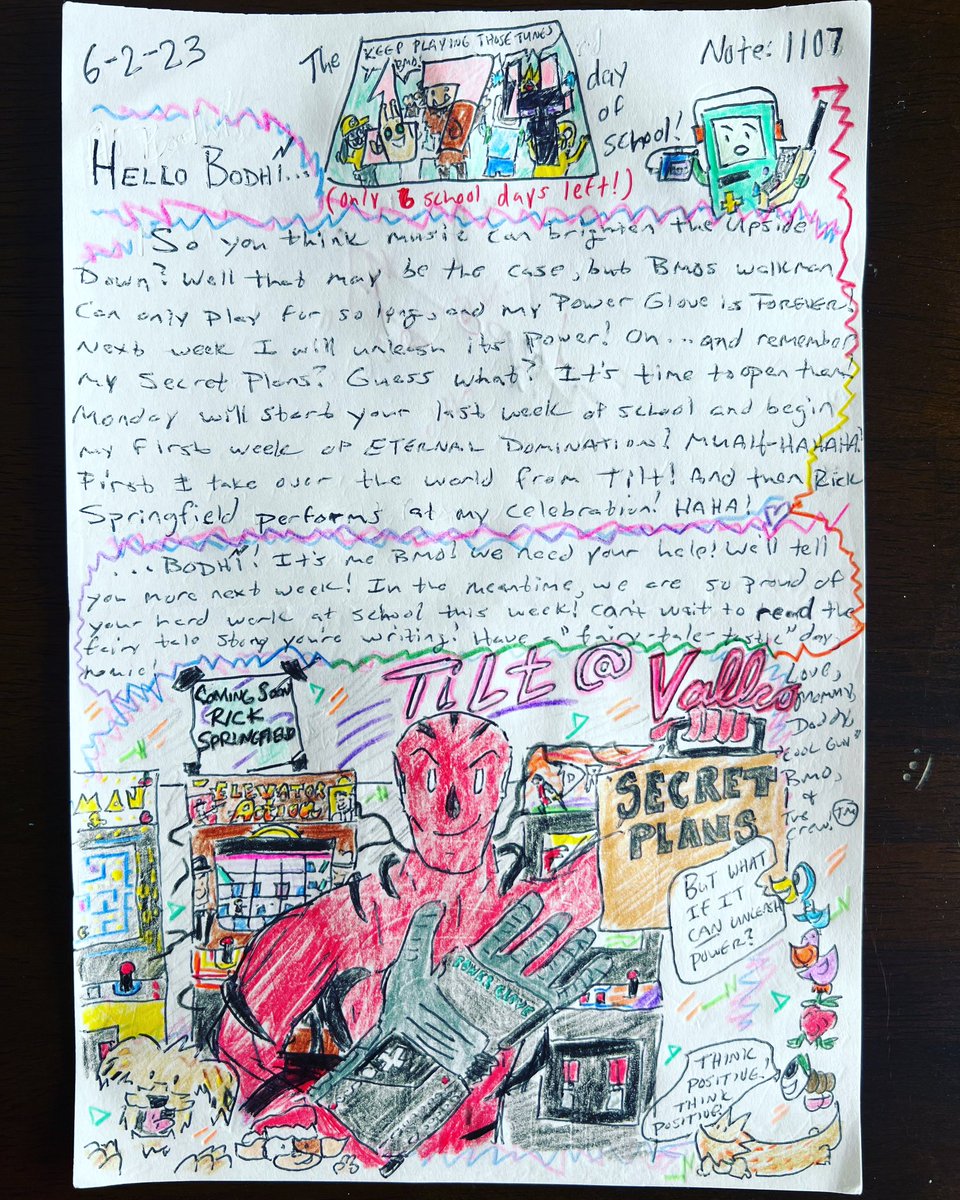 6-2-23
The
KEEP PLAYING THOSE TUNES
BMO!
day
of
school!
Note: 1107
(only 6 school days left!)
HELLO BODHI...
So you think music can brighten the Upside
Down? Well that may be the case, but BMOs walkman
Can only play for so long, and my Power Glove is FOREVER!
Next week I will unleash its Power! Oh... and remember
my Secret Plans? Guess what? It's time to open them
Monday will start your last week of school and begin
my first week of ETERNAL DOMINATION! MUAH-HAHAHA!
First I take over the world from Tilt! And then Rick
Springfield performs at my celebration! HAHA!
...BODHI! It's me BMO! We need your help! We'll tell
you more next week! In the meantime, we are so proud of
your hard work at school this week! Can't wait to read the
fairy tale story you're writing! Have a "fairy-tale-tastic" day
homie!
Love,
Mommy,
Daddy,
"COOL GUN"
BMO,
&
The Crew, TM
TILT @ Vallco
COMING SOON
RICK
SPRINGFIELD
MAN
ELEVATOR
Action
SECRET
PLANS
POWER GLOVE
BUT WHAT
IF IT
CAN UNLEASH
POWER?
THINK
POSITIVE!
THINK
POSITIVE!